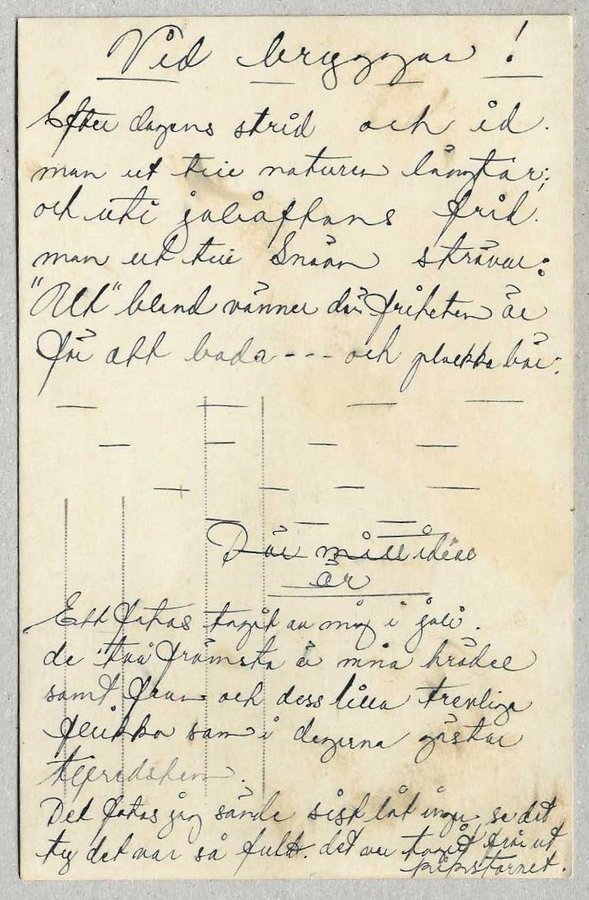 Vid bryggan!
Efter dagens strid och id.
man ut till naturen längtar;
och uti juliaftons frid.
man ut till Snåån strävar:
"Allt" bland vänner där friheten är
för att bada --- och plocka bär:
är
Ett fotos tagit av mig i juli.
de två främsta är mina bröder
samt frun och dess lilla trevliga
flicka som i dagarna gästar
Det fotos jag sände sist låt ingen se det
ty det var så fult. det var taget från ut